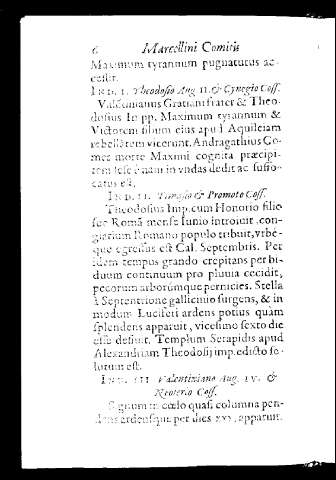 6 Marcellini Comitis
Maximum tyrannum pugnaturus ac-
cessit.
IND. I. Theodosio Aug. II. & Cynegio Coss.
Valentinianus Gratiani frater & Theo-
dosius Impp. Maximum tyrannum &
Victorem filium eius apud Aquileiam
rebellãtem vicerunt. Andragathius Co-
mes morte Maximi cognita præcipi-
tem sese è naui in vndas dedit ac suffo-
catus est.
IND. II. Timasio & Promoto Coss.
Theodosius Imp. cum Honorio filio
suo Romã mense Iunio introiuit, con-
giarium Romano populo tribuit, vrbé-
que egressus est Cal. Septembris. Per
idem tempus grando crepitans per bi-
duum continuum pro pluuia cecidit,
pecorum arborúmque pernicies. Stella
à Septentrione gallicinio surgens, & in
modum Luciferi ardens potius quàm
splendens apparuit, vicesimo sexto die
esse desiuit. Templum Serapidis apud
Alexandriam Theodosij imp. edicto so-
lutum est.
IND. III. Valentiniano Aug. IV. &
Neoterio Coss.
Signum in cœlo quasi columna pen-
dens ardensque per dies xxx. apparuit.